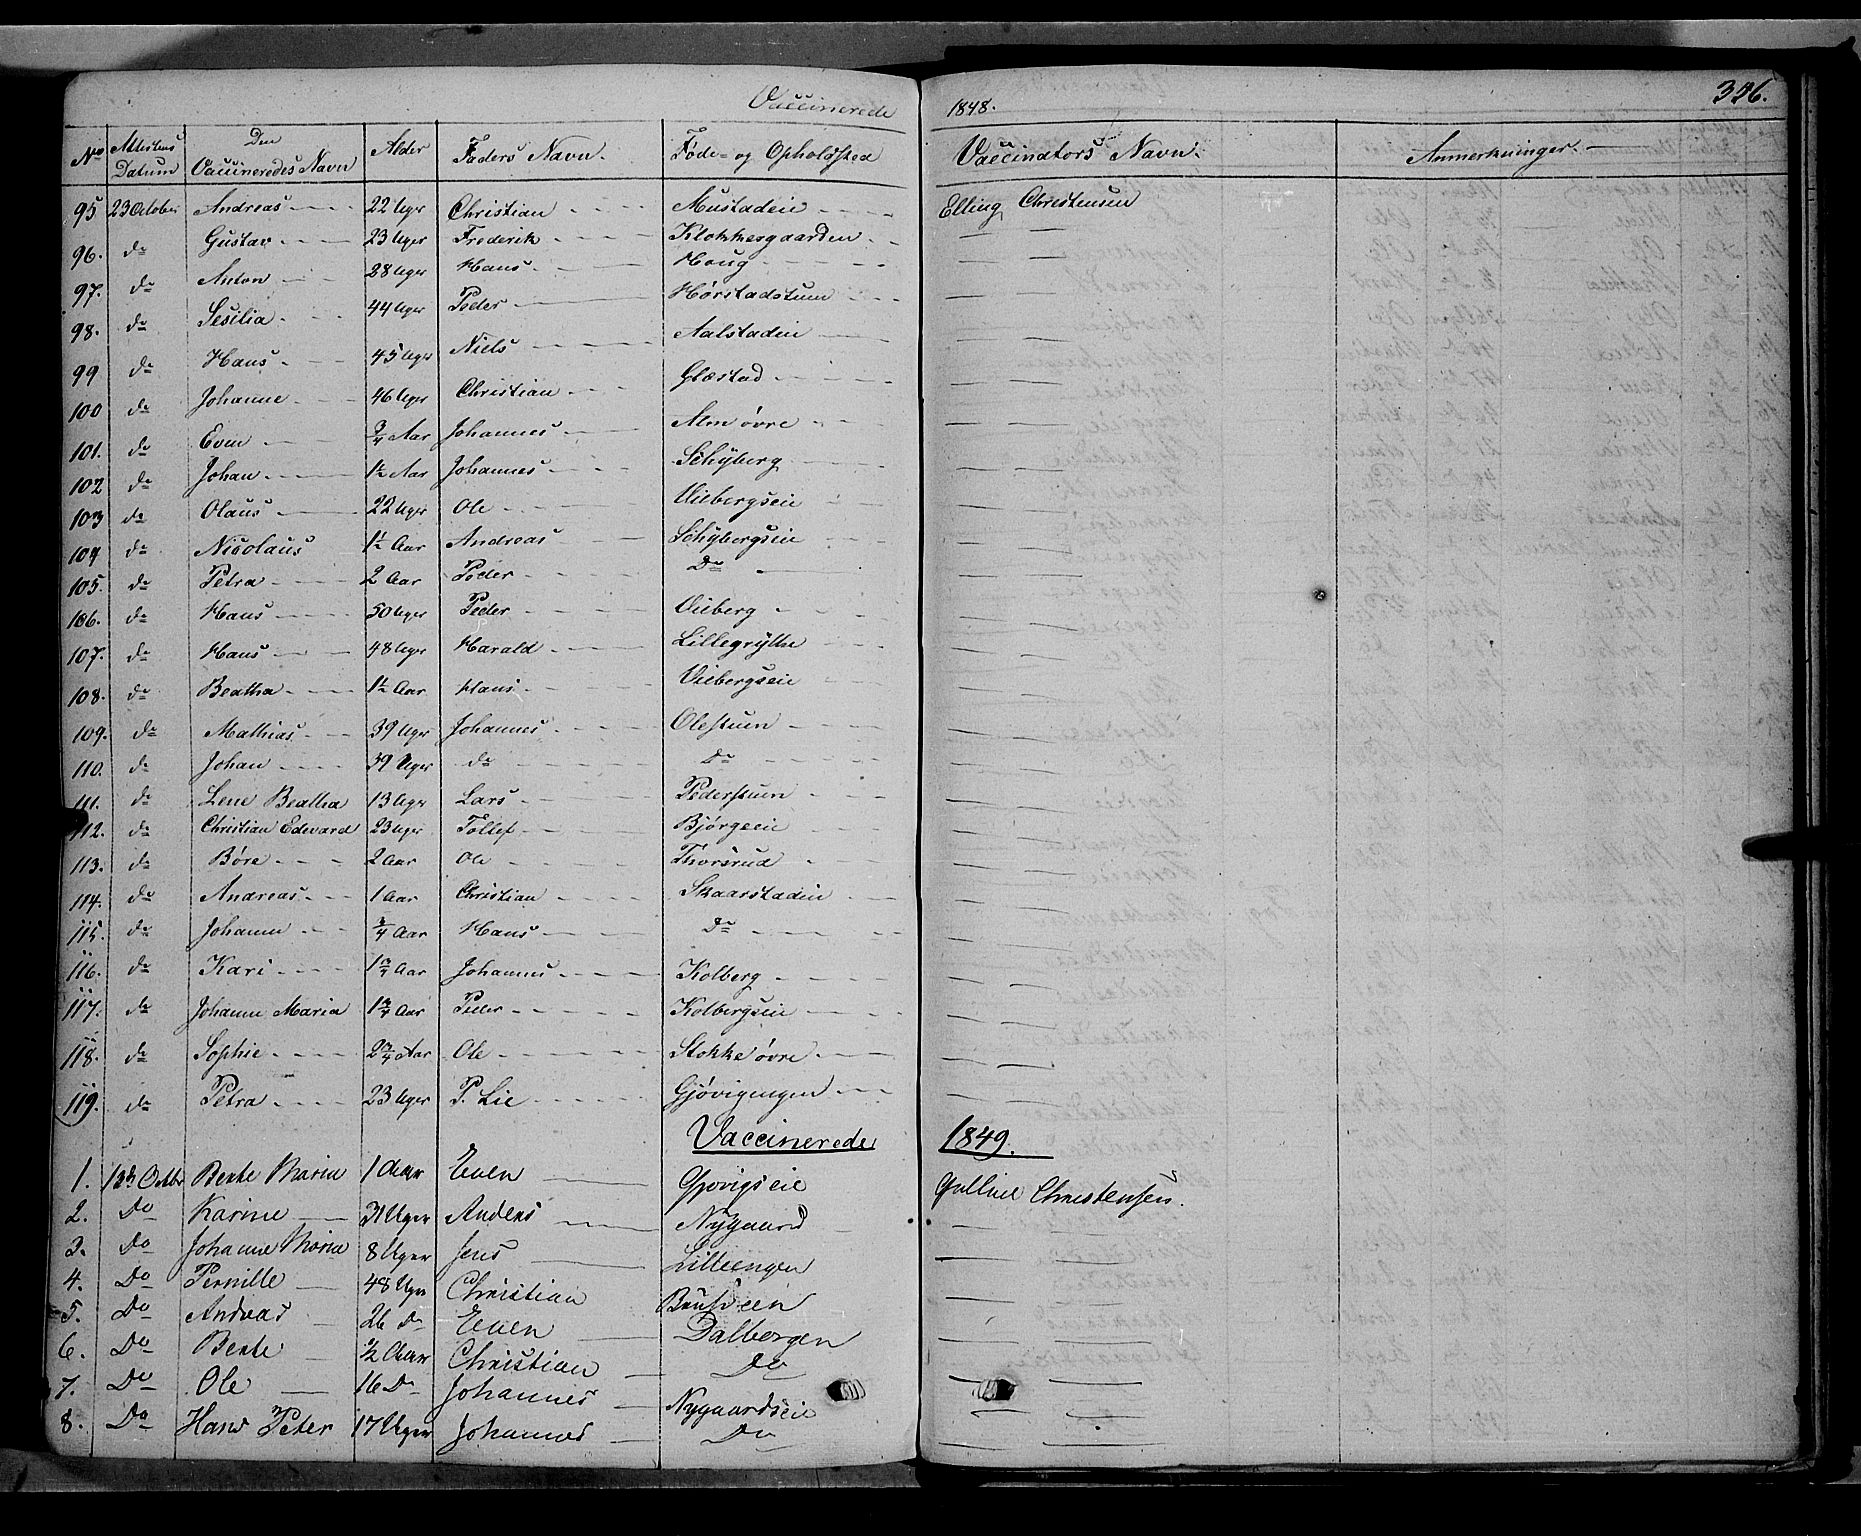 Vaccinerede 1848. 356.
No Attestens Datum Den Vaccineredes Navn Alder Faders Navn. Føde- og Opholdsted Vaccinators Navn. Anmerkninger.
95 23 October Andreas 22 Uger Christian Mustadeie Elling Christensen
96. do Gustav 23 Uger Frederik Klokkergaarden
97. do Anton 28 Uger Hans Houg
98. do Sesilia 44 Uger Peder Hørstadstuen
99 do Hans 45 Uger Niels Aalstadeie
100 do Johanne 46 Uger Christian Glæstad
101. do Even 3/4 Aar Johannes Alm øvre
102 do Johan 1 1/2 Aar Johannes Schyberg
103 do Olaus 22 Uger Ole Viebergseie
104 do Nicolaus 1 1/2 Aar Andreas Schybergseie
105. do Petra 2 Aar Peder Do
106. do Hans 50 Uger Peder Vieberg
107. do Hans 48 Uger Harald Lillegrytte
108. do Beatha 1 1/2 Aar Hans Viebergseie
109. do Mathias 39 Uger Johannes Olestuen
110. do Johan 39 Uger do Do
111. do Lene Beatha 13 Uger Lars Pederstuen
112. do Christian Edevard 23 Uger Tollef Bjørgseie
113. do Børe 2 Aar Ole Thorsrud
114. do Andreas 1 Aar Christian Skaarstadeie
115. do Johanne 3/4 Aar Hans Do
116. do Kari 1 3/4 Aar Johannes Kolberg
117. do Johanne Maria 1 3/4 Aar Peder Kolbergseie
118. do Sophie 2 3/4 Aar Ole Stokke øvre
119. do Petra 23 Uger P. Lie Gjøvigengen
Vaccinerede 1849.
1. Octbr Bente Maria 1 Aar Even Gjøvigseie Christensen.
2. Do Karine 31 Uger Anders Nygaard
3. Do Johanne Maria 8 Uger Jens Lilleengen
4. Do Pernille 48 Uger Christian
5. Do Andreas 26 Do Even Dalborgen
6. Do Bente 1/2 Aar Christian Do
7. Do Ole 16 Do Johannes Nygaardseie
8. Do Hans Peter 17 Uger Johannes Do